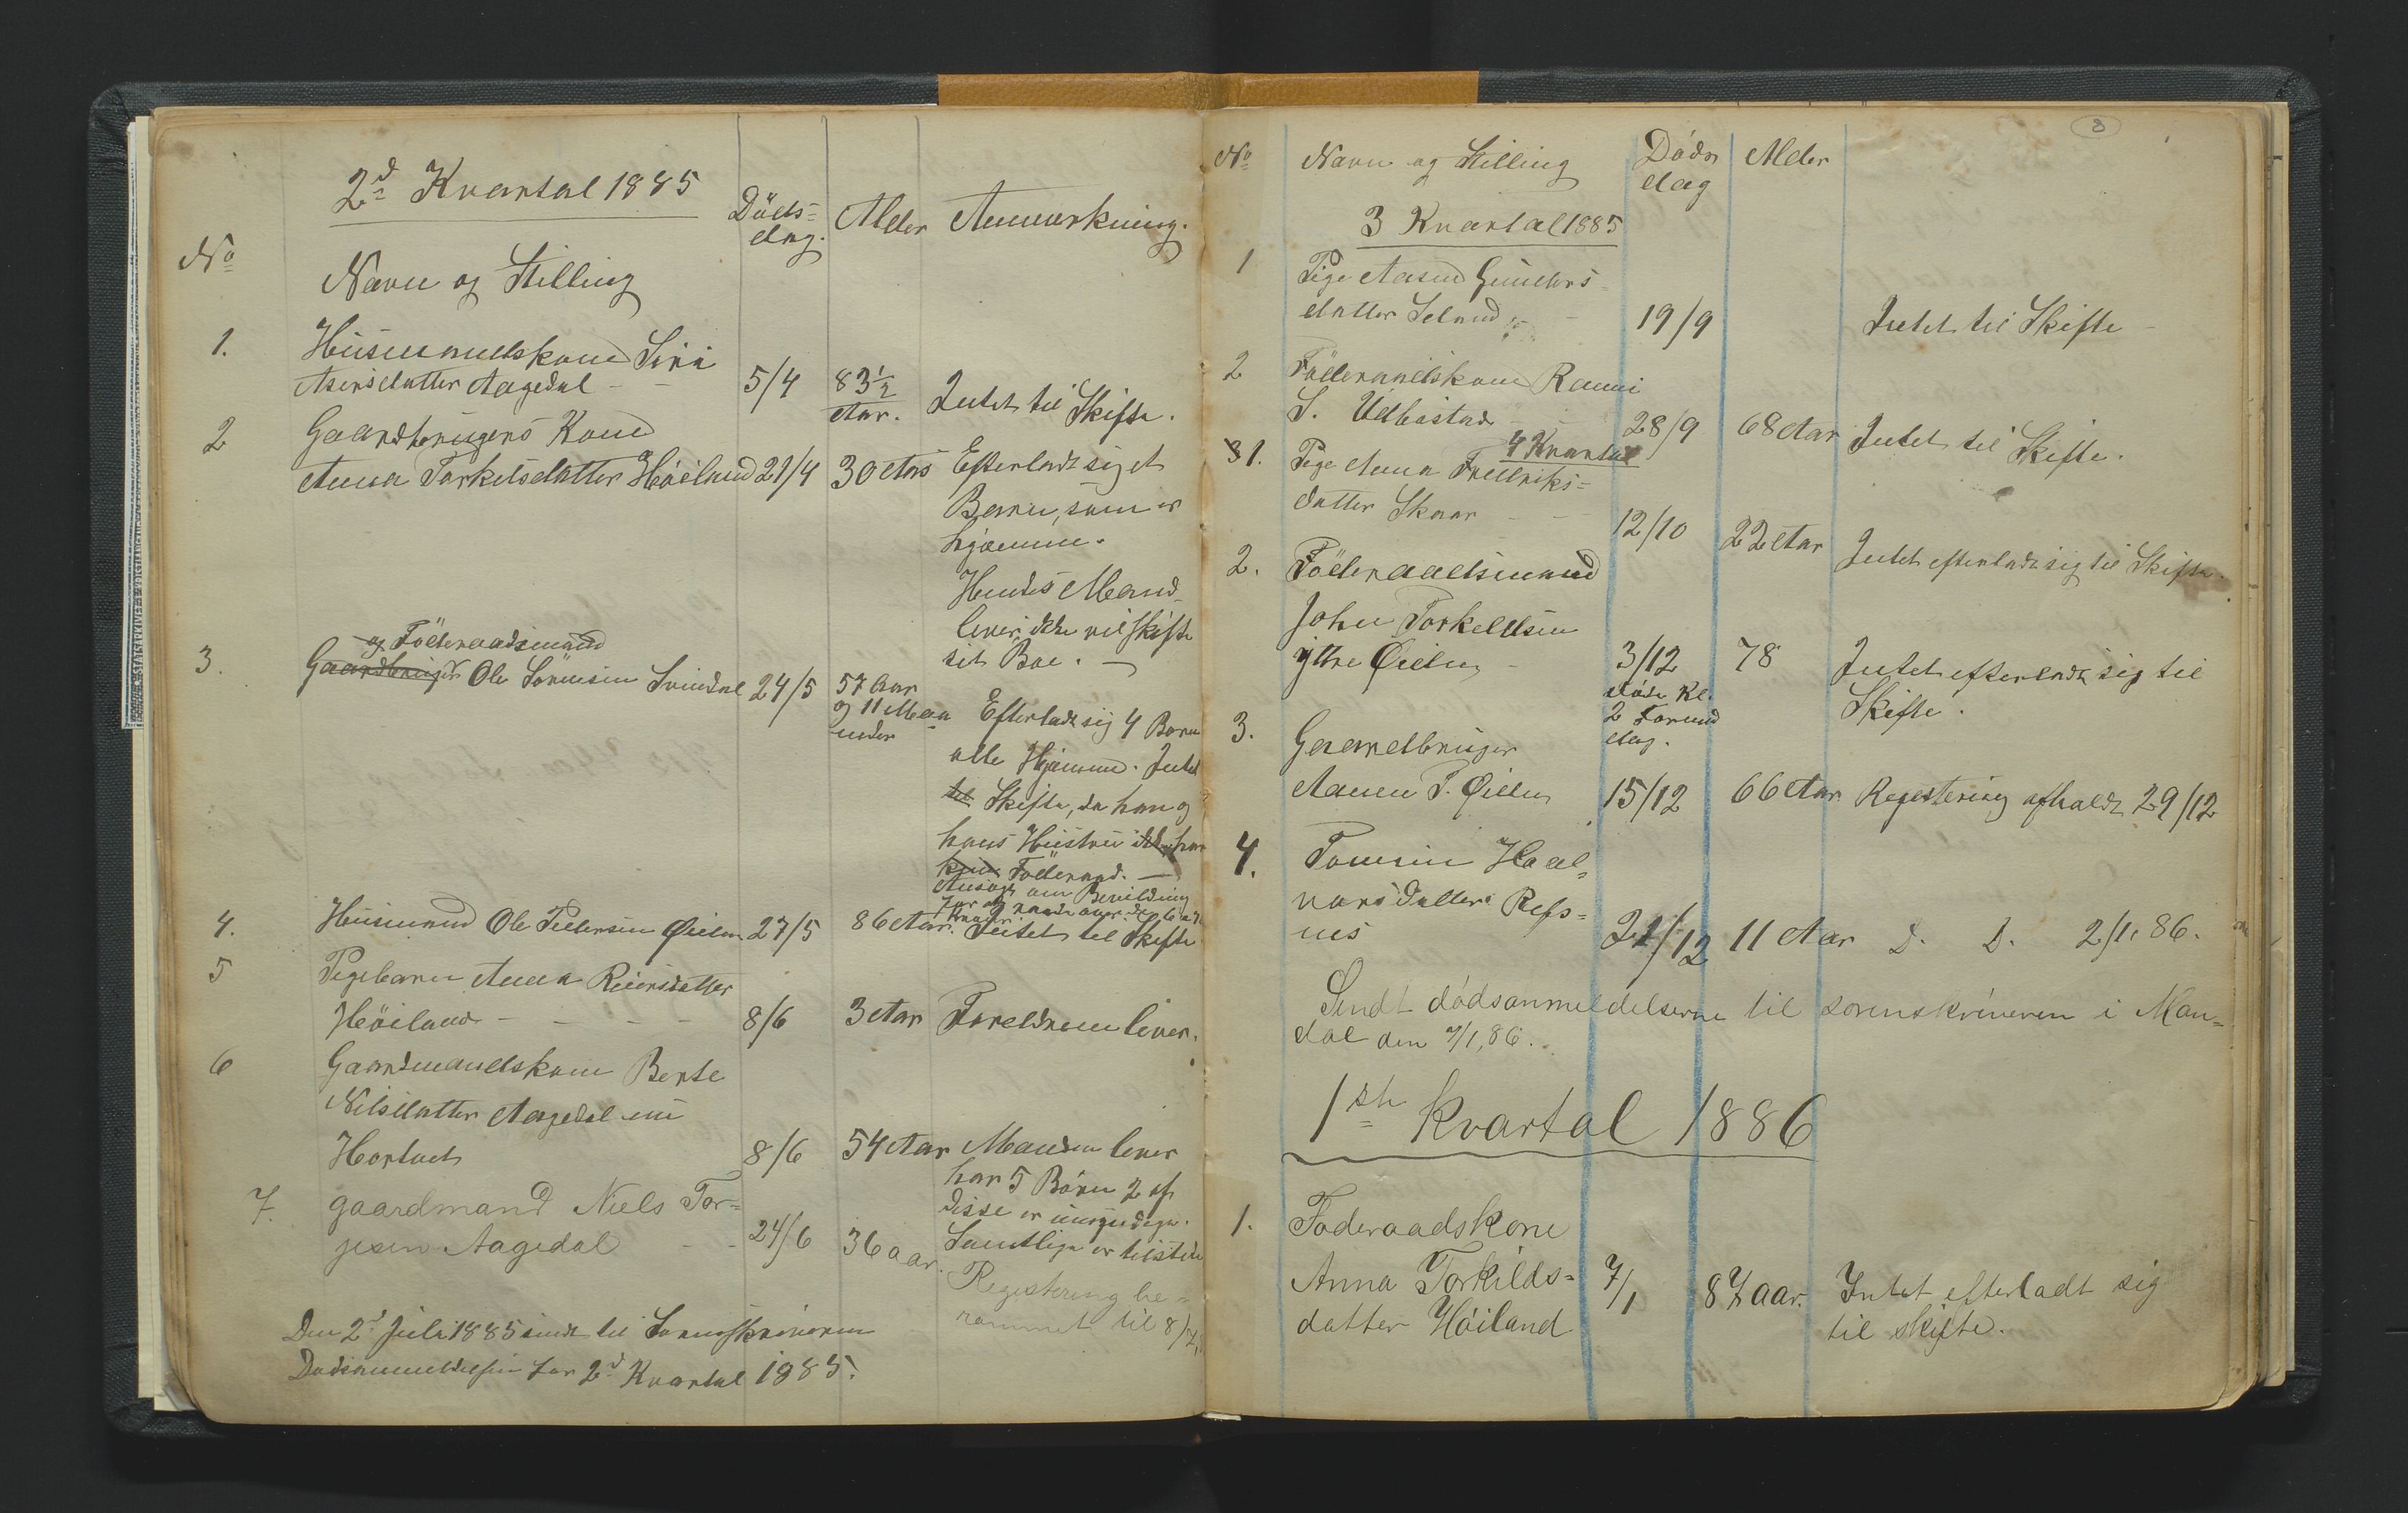 2d Kvartal 1885
No
Navn og Stilling
Döds=
dag.
Alder
Anmærkning.
1.
Husmandskone Siri
Asersdatter Aagedal - -
5/4
83 1/2
Aar.
Intet til Skifte.
2
Gaardbrugers Kone
Anna Torkelsdatter Höiland
21/4
30 Aar
Efterladt sig et
Barn, som er
hjemme.
Hendes Mand
lever, ikke vil skifte
sit Boe. -
3.
og Föderaadsmand
Gaardbruger Ole Sörensen Svindal
24/5
57 Aar
og 11 Maa
neder
Efterladt sig 4 Børn
alle Hjemme. Intet
til Skifte, da han og
hans Hustru ikke har
kun Föderaad. -
Ansøgt om Bevilding
4.
Husmand Ole Pedersen Øielen
27/5
86 Aar.
Intet til Skifte
5
Pigebarn Anna Reiersdatter
Höiland - - - -
8/6
3 Aar
Foreldrene lever.
6
Gaardmandskone Berte
Nilsdatter Aagedal
Hortvet
8/6
54 Aar
Manden lever
har 5 Børn 2 af
disse er umyndige.
Samtlige er tilstede
7.
gaardmand Niels Tor=
jesen Aagedal - -
24/6
36 aar.
Registering be=
rammet til 8/7,
Den 2d Juli 1885 sendt til Sorenskriveren
Dødsanmeldelsen for 2d Kvartal 1885.
8
No
Navn og Stilling
Døds
dag
Alder
3 Kvartal 1885
1
Pige Aasne Gunders
datter Seland - -
19/9
Intet til Skifte -
2
Föderaadskone Ranni
S. Udböstad
28/9
68 Aar
Intet til Skifte.
4 Kvartal
3 1.
Pige Anna Fredriks=
datter Skaar - -
12/10
22 Aar
Intet efterladt sig til Skifte.
2.
Föderaadsmand
John Torkeldsen
ytre Øielen -
3/12
døde Kl.
2 Formid
dag.
78
Intet efterladt sig til
Skifte.
3.
Gaardbruger
Aanen T. Øielen
15/12
66 Aar
Registering afholdt 29/12
4.
Tomine Haal=
vorsdatter Refs=
nes
21/12
11 Aar
D. D. 2/1, 86.
Sendt dødsanmeldelserne til sorenskriveren i Man=
dal den 7/1, 86.
1ste Kvartal 1886
1.
Foderaadskone
Anna Torkilds=
datter Høiland
7/1
87 aar.
Intet efterladt sig
til skifte.